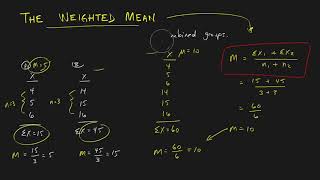 THE WEIGHTED MEAN
Combined groups.
M = 5
1B
μ = 10
X
4
5
6
n=3
ΣX = 15
M = 15/3 = 5
X
14
15
16
n=3
ΣX = 45
M = 45/3 = 15
X
4
5
6
14
15
16
ΣX = 60
M = 60/6 = 10
M = ΣX₁ + ΣX₂ / n₁ + n₂
= 15 + 45 / 3 + 3
= 60/6
M = 10